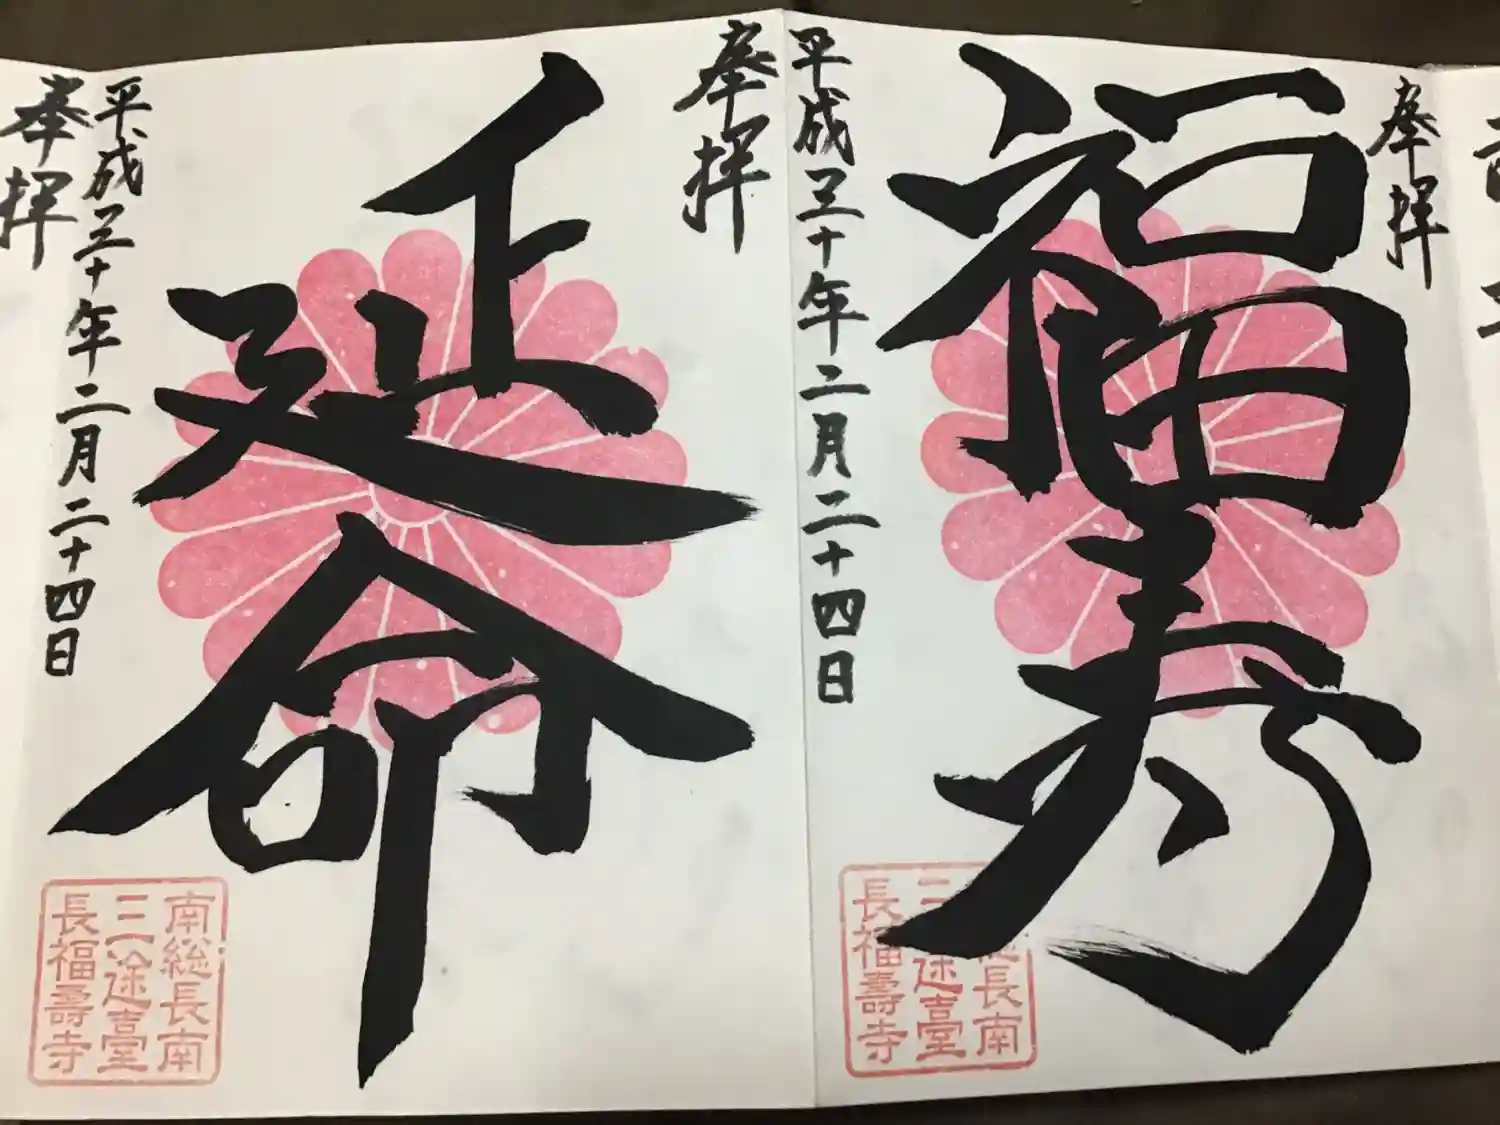 奉拝
福寿
平成三十年二月二十四日
長南
三途臺
長福壽寺
奉拝
延命
平成三十年二月二十四日
南総長南
三途臺
長福壽寺
奉拝